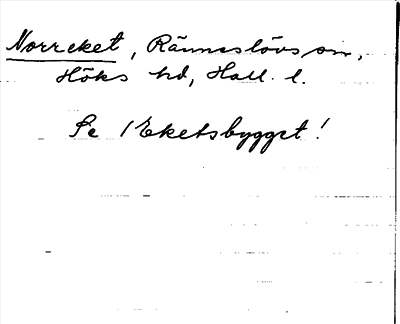 Norreket, Ränneslövs sn,
Höks hd, Hall. l.
Se 1 Eketsbygget!